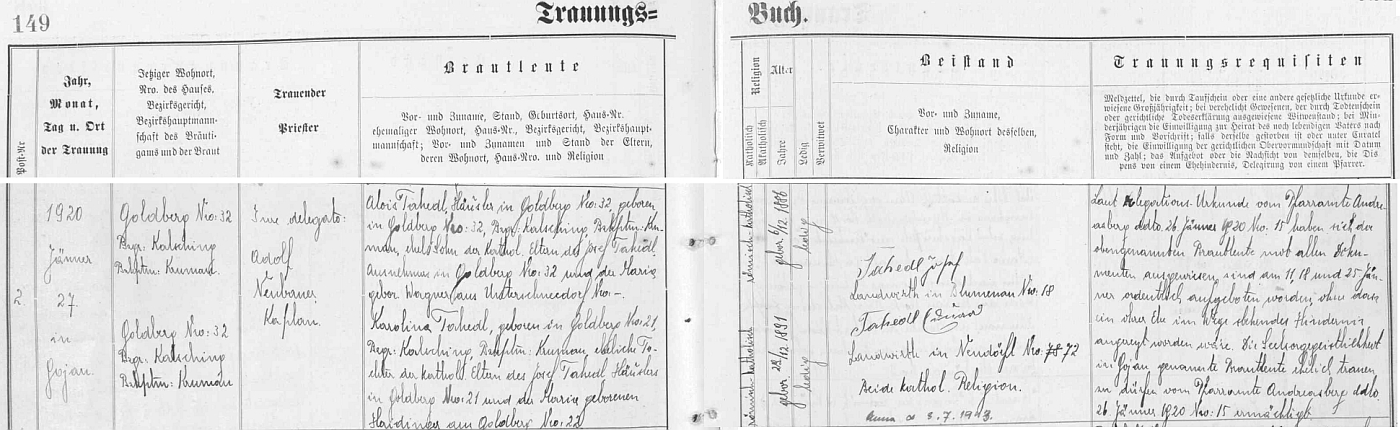 149
Trauungs=
Buch.
Post-Nr
Jahr,
Monat,
Tag u. Ort
der Trauung
Jetziger Wohnort,
Nro. des Hauses,
Bezirksgericht,
Bezirkshauptmann-
schaft des Bräuti-
gams und der Braut
Trauender
Priester
Brautleute
Vor- und Zuname, Stand, Geburtsort, Haus-Nr.
ehemaliger Wohnort, Haus-Nr., Bezirksgericht, Bezirkshaupt-
mannschaft; Vor- und Zunamen und Stand der Eltern,
deren Wohnort, Haus-Nro. und Religion
Religion
Katholisch
Akatholisch
Alter
Jahre
Ledig
Verwitwet
Beistand
Vor- und Zuname,
Charakter und Wohnort desselben,
Religion
Trauungsrequisiten
Meldzettel, die durch Taufschein oder eine andere gesetzliche Urkunde er-
wiesene Großjährigkeit; bei verehelicht Gewesenen, der durch Todtenschein
oder gerichtliche Todeserklärung ausgewiesene Witwenstand; bei Min-
derjährigen die Einwilligung zur Heirat des noch lebendigen Vaters nach
Form und Vorschrift; falls derselbe gestorben ist oder unter Curatel
steht, die Einwilligung der gerichtlichen Obervormundschaft mit Datum
und Zahl; das Aufgebot oder die Nachsicht von demselben, die Dis-
pens von einem Ehehindernis, Delegirung von einem Pfarrer.
2.
1920
Jänner
27
in
Gojau.
Goldberg Nro: 32
Bzgr: Kalsching
Bzkhptm: Krumau.
Goldberg Nro: 32
Bzgr: Kalsching
Bzkhptm: Krumau
Jure delegato:
Adolf
Neubauer
Kaplan.
Alois Tahedl, Häusler in Goldberg Nro: 32, geboren
in Goldberg Nro: 32, Bzgr: Kalsching, Bzkhptm: Kru-
mau, ehel. Sohn der kathol. Eltern des Josef Tahedl,
Ausnehmer in Goldberg Nro: 32 und der Maria
gebor. Wagner aus Unterschneedorf Nro: -.
Karolina Tahedl, geboren in Goldberg Nro: 21,
Bzgr: Kalsching, Bzkhptm: Krumau, eheliche To-
chter der kathol. Eltern des Josef Tahedl Häuslers
in Goldberg Nro: 21 und der Maria geborenen
Haidinger aus Goldberg Nro: 22
römisch-katholisch
gebor. 6/12. 1886
ledig
römisch-katholisch
gebor. 29/12 1891
ledig
Tahedl Josef
Landwirth in Blumenau Nro: 18
Tahedl
Landwirth in Neudörfl Nro: 72
Beide kathol. Religion.
Laut Delegations-Urkunde vom Pfarramte Andre-
asberg ddto. 26. Jänner 1920 Nro: 15 haben sich die
obengenannten Brautleute mit allen Doku-
menten ausgewiesen, sind am 11, 18 und 25 Jän-
ner ordentlich aufgeboten worden, ohne dass
ein ihrer Ehe im Wege stehendes Hindernis
angezeigt worden wäre. Die Seelsorgegeistlichkeit
in Gojau genannte Brautleute ehelich trauen
zu dürfen vom Pfarramte Andreasberg ddto.
26 Jänner 1920 Nro: 15 ermächtigt.